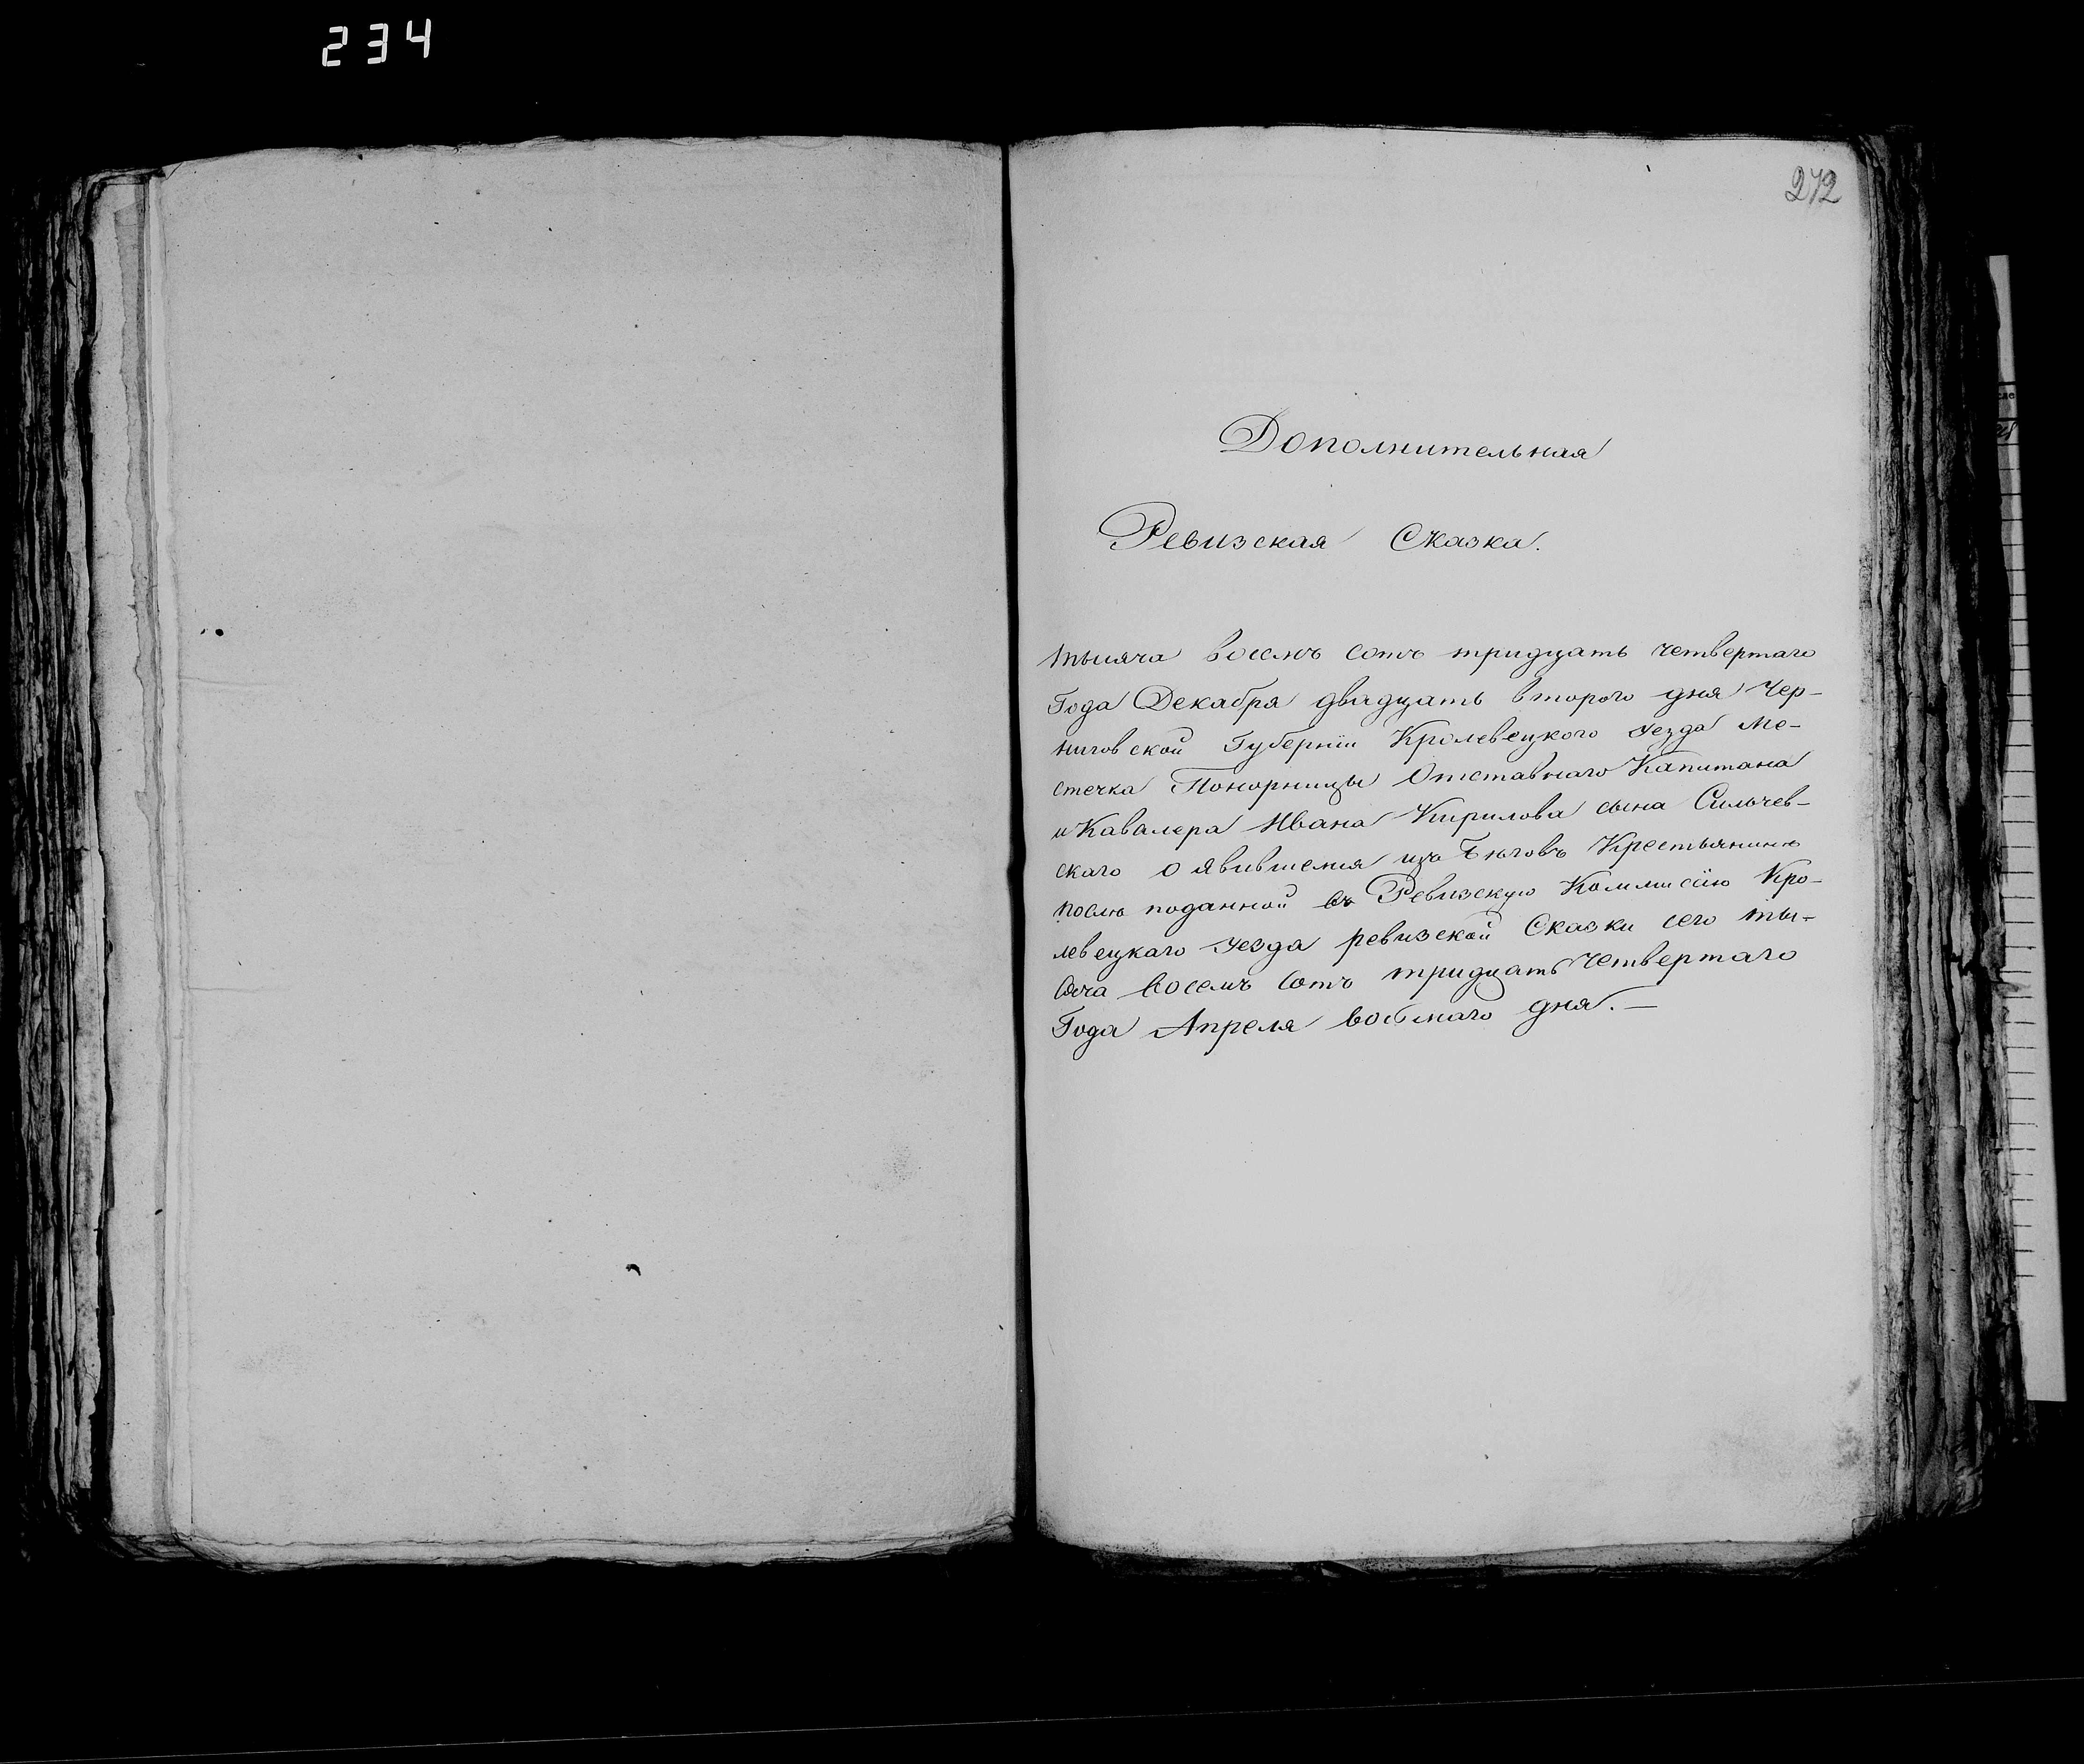 234
272
Дополнительная
Ревизская Сказка.
тысяча восемъ сотъ тридцать четвертаго
Года Декабря двадцать втораго дня Чер-
ниговской Губерніи Кролевецкого уезда Ме-
стечка Понорницы Отставнаго Капитана
и Кавалера Ивана Кирилова сына Сильчев-
скаго о явившемся изъ бѣговъ Крестьянинѣ
послѣ поданной въ Ревизскую Коммисію Кро-
левецкаго уезда ревизской Сказки сего ты-
сяча восемъ сотъ тридцать четвертаго
Года Апреля восмаго дня.—